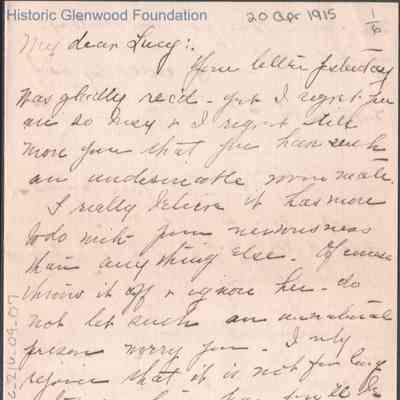 Historic Glenwood Foundation
20 Apr 1915
1/6
My dear Lucy:.
Your letter yesterday
was gladly rec'd - yet I regret you
are so busy & I regret still
more you that you have such
an undesirable room mate.
I really believe it has more
to do with your nervousness
than any thing else. Of course
throw it off & ignore her - do
not let such an unnatural
person worry you - I only
rejoice that it is not for long